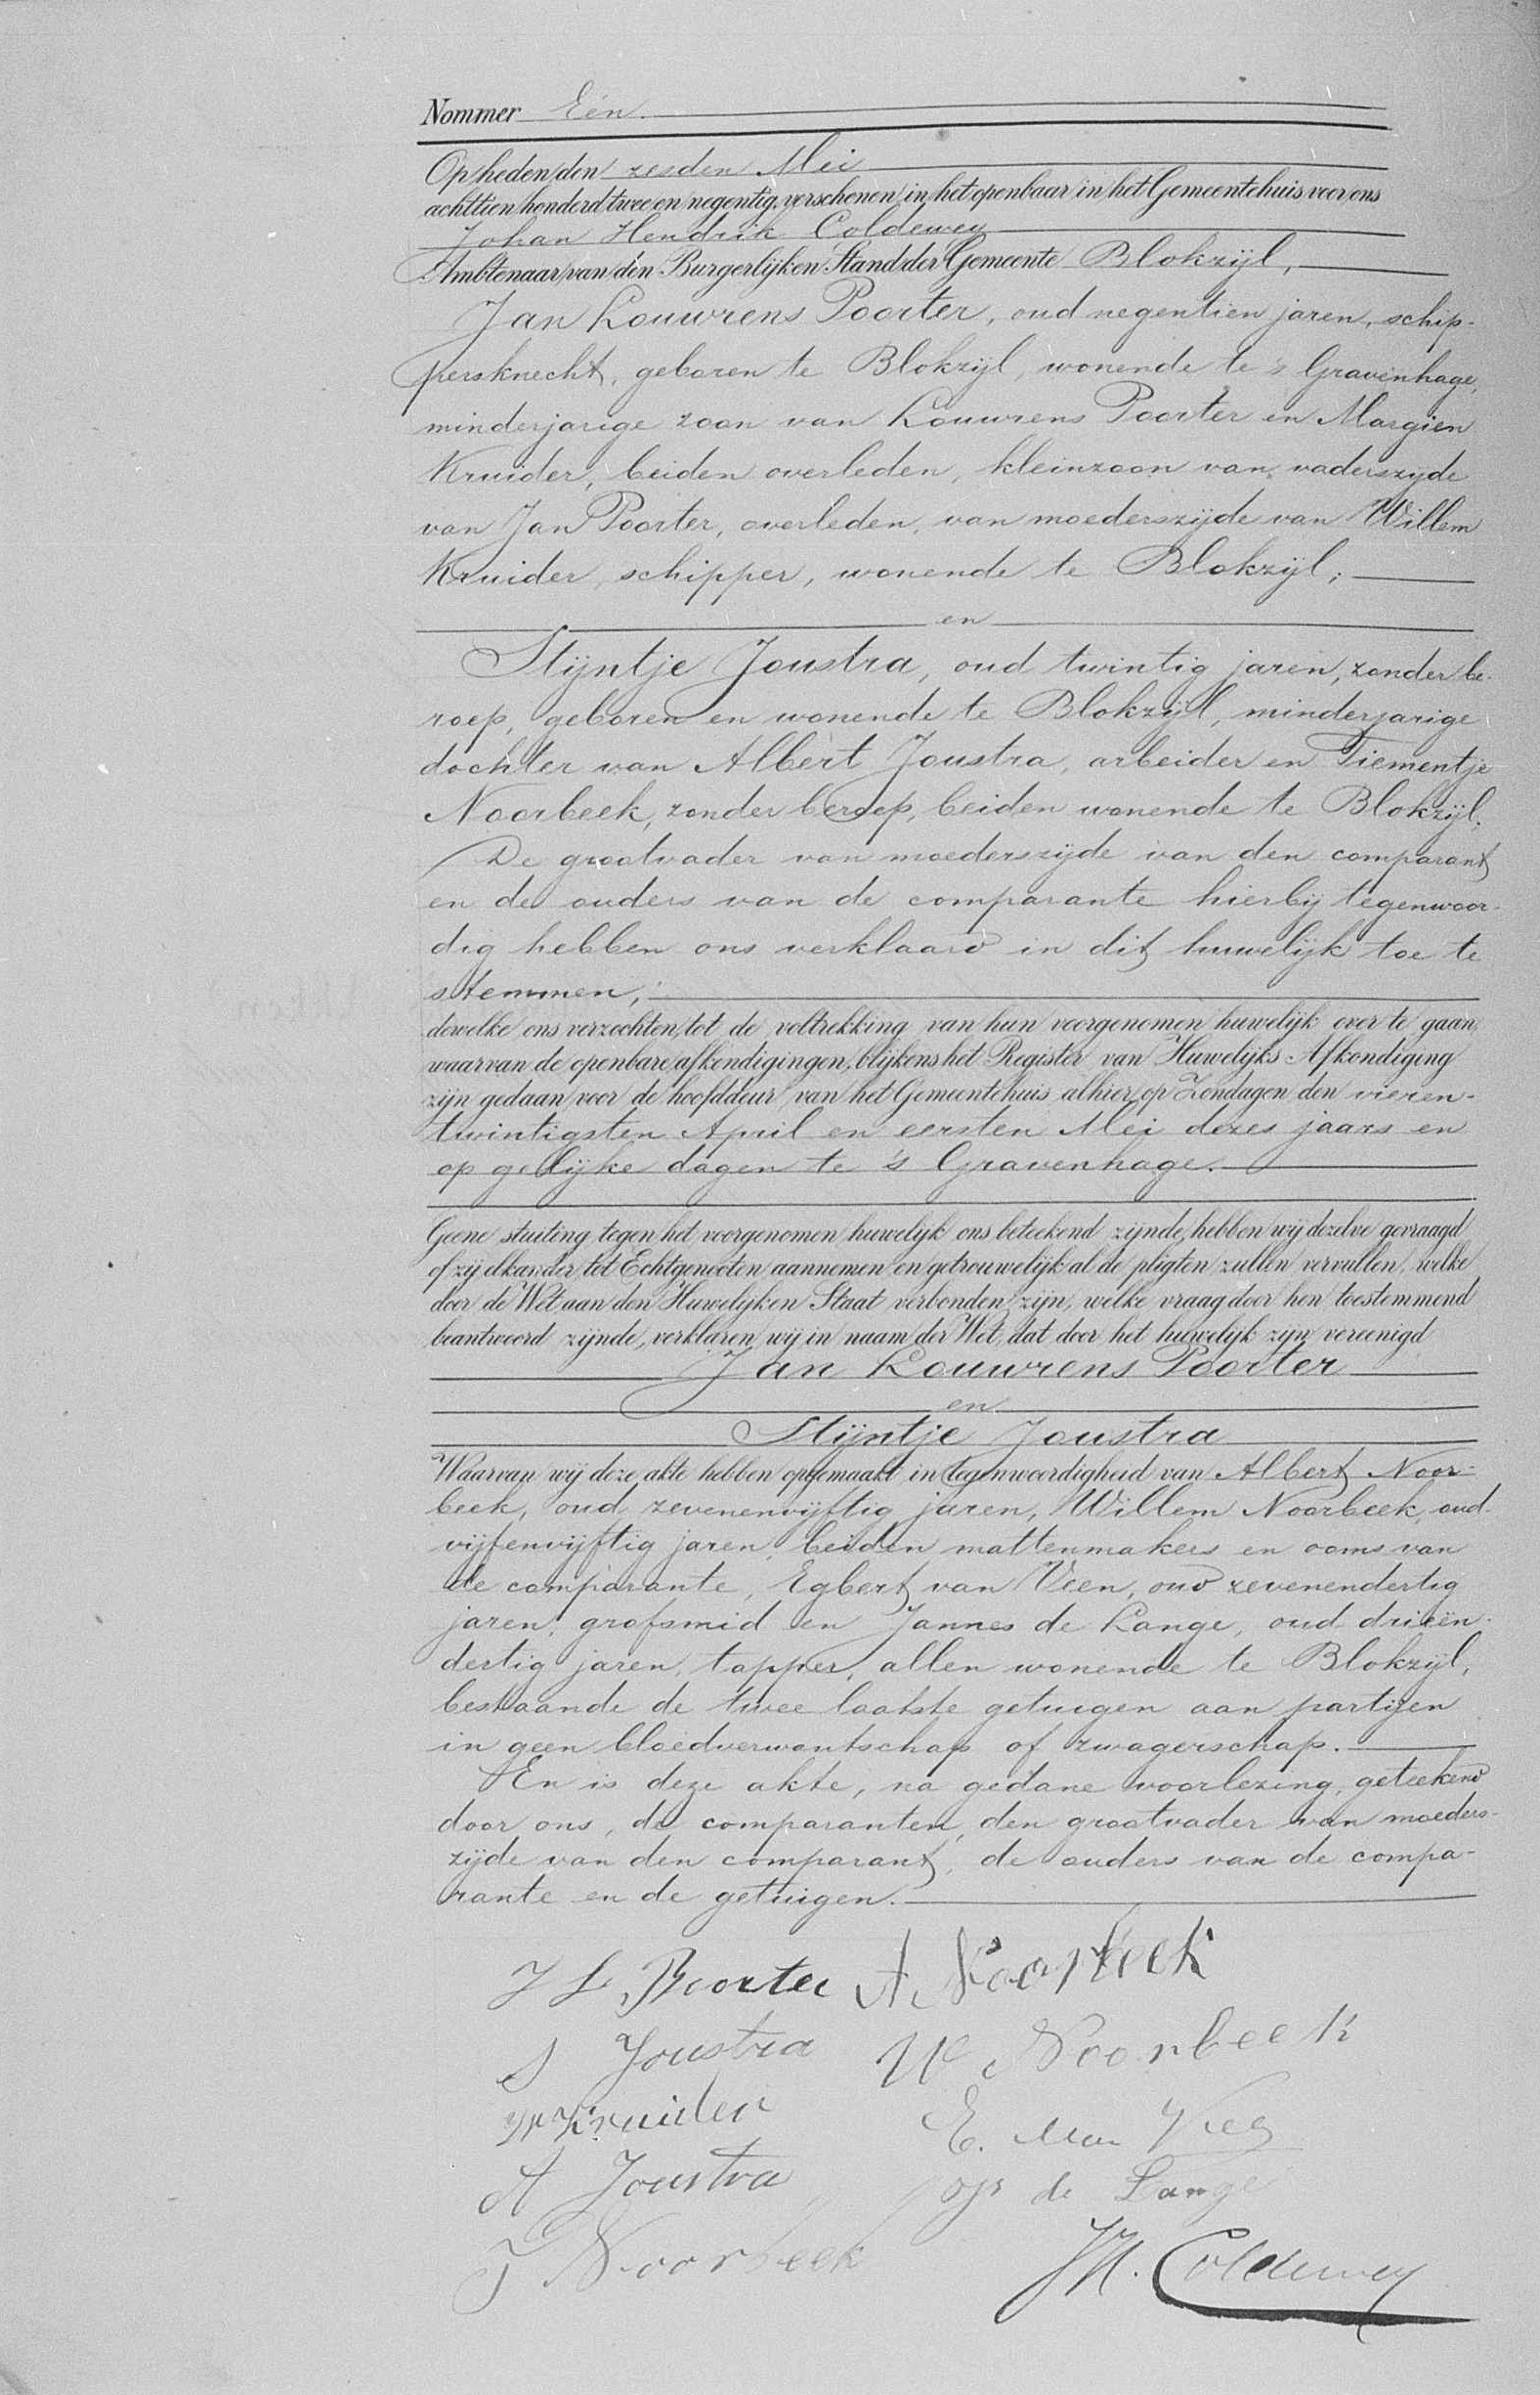 Nommer Eén.
Op heden den zesden Mei
achttien honderd twee en negentig, verschenen in het openbaar in het Gemeentehuis voor ons
Johan Hendrik Coldewey
Ambtenaar van den Burgerlijken Stand der Gemeente Blokzijl,
Jan Louwrens Poorter, oud negentien jaren, schip-
persknecht, geboren te Blokzijl, wonende te 's Gravenhage,
minderjarige zoon van Louwrens Poorter en Margien
Kruider, beiden overleden, kleinzoon van vaderszijde
van Jan Poorter, overleden, van moederszijde van Willem
Kruider, schipper, wonende te Blokzijl;
en
Stijntje Joustra, oud twintig jaren, zonder be-
roep, geboren en wonende te Blokzijl, minderjarige
dochter van Albert Joustra, arbeider en Tiementje
Noorbeek, zonder beroep, beiden wonende te Blokzijl.
De grootvader van moederszijde van den comparant
en de ouders van de comparante hierbij tegenwoor-
dig hebben ons verklaard in dit huwelijk toe te
stemmen;
dewelke ons verzochten, tot de voltrekking van hun voorgenomen huwelijk over te gaan,
waarvan de openbare afkondigingen, blijkens het Register van Huwelijks Afkondiging
zijn gedaan voor de hoofddeur van het Gemeentehuis alhier, op Zondagen den vieren-
twintigsten April en eersten Mei dezes jaars en
op gelijke dagen te 's Gravenhage.
Geene stuiting tegen het voorgenomen huwelijk ons beteekend zijnde, hebben wij dezelve gevraagd
of zij elkander tot Echtgenooten aannemen en getrouwelijk al de pligten zullen vervullen, welke
door de Wet aan den Huwelijken Staat verbonden zijn, welke vraag door hen toestemmend
beantwoord zijnde, verklaren wij in naam der Wet, dat door het huwelijk zijn vereenigd
Jan Louwrens Poorter
en
Stijntje Joustra
Waarvan wij deze akte hebben opgemaakt in tegenwoordigheid van Albert Noor-
beek, oud zevenenvijftig jaren, Willem Noorbeek, oud
vijfenvijftig jaren, beiden mattenmakers en ooms van
de comparante, Egbert van Veen, oud zevenendertig
jaren, grofsmid en Jannes de Lange, oud drieën-
dertig jaren, tapper, allen wonende te Blokzijl,
bestaande de twee laatste getuigen aan partijen
in geen bloedverwantschap of zwagerschap.
En is deze akte, na gedane voorlezing, geteekend
door ons, de comparanten, den grootvader van moeders-
zijde van den comparant, de ouders van de compa-
rante en de getuigen.
J L Poorter A Noorbeek
S Joustra W Noorbeek
W Kruider E. van Veen
A Joustra Js de Lange
T Noorbeek JH. Coldewey